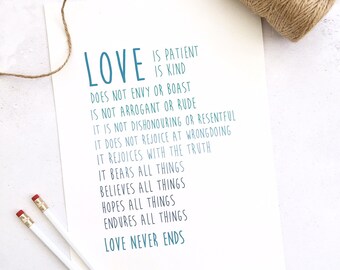 LOVE IS PATIENT
IS KIND
DOES NOT ENVY OR BOAST
IS NOT ARROGANT OR RUDE
IT IS NOT DISHONOURING OR RESENTFUL
IT DOES NOT REJOICE AT WRONGDOING
IT REJOICES WITH THE TRUTH
IT BEARS ALL THINGS
BELIEVES ALL THINGS
HOPES ALL THINGS
ENDURES ALL THINGS
LOVE NEVER ENDS